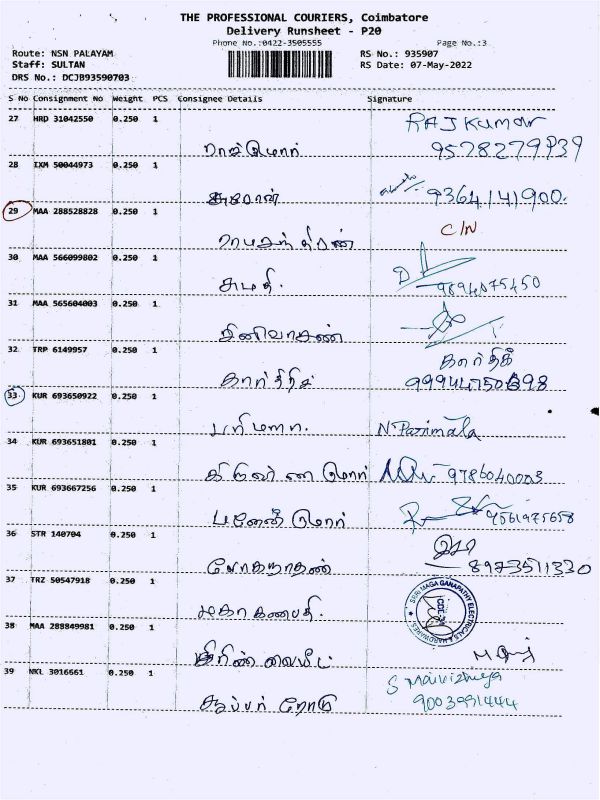 THE PROFESSIONAL COURIERS, Coimbatore
Delivery Runsheet - P20
Phone No.:0422-3505555 Page No.:3
Route: NSN PALAYAM RS No.: 935907
Staff: SULTAN RS Date: 07-May-2022
DRS No.: DCJB93590703
S No Consignment No Weight PCS Consignee Details Signature
27 HRD 31042550 0.250 1
RAJKumar
ராஜ்குமார் 9578279939
28 IXM 50044973 0.250 1
9364141900.
29 MAA 288528828 0.250 1
C/N
ராமசந்திரன்
30 MAA 566099802 0.250 1
சுமதி. 9894075450
31 MAA 565604003 0.250 1
சீனிவாசன்
32 TRP 6149957 0.250 1
கார்த்திக்
33 KUR 693650922 0.250 1
பரிமளா. N. Parimala
34 KUR 693651801 0.250 1
9786040003
35 KUR 693667256 0.250 1
9561975658
36 STR 140704 0.250 1
லோகநாதன் 8973511330
37 TRZ 50547918 0.250 1
SRI MAGA GANAPATHY ELECTRICALS & HARDWARES
மகா கணபதி.
38 MAA 288849981 0.250 1
39 NKL 3016661 0.250 1
9003991444